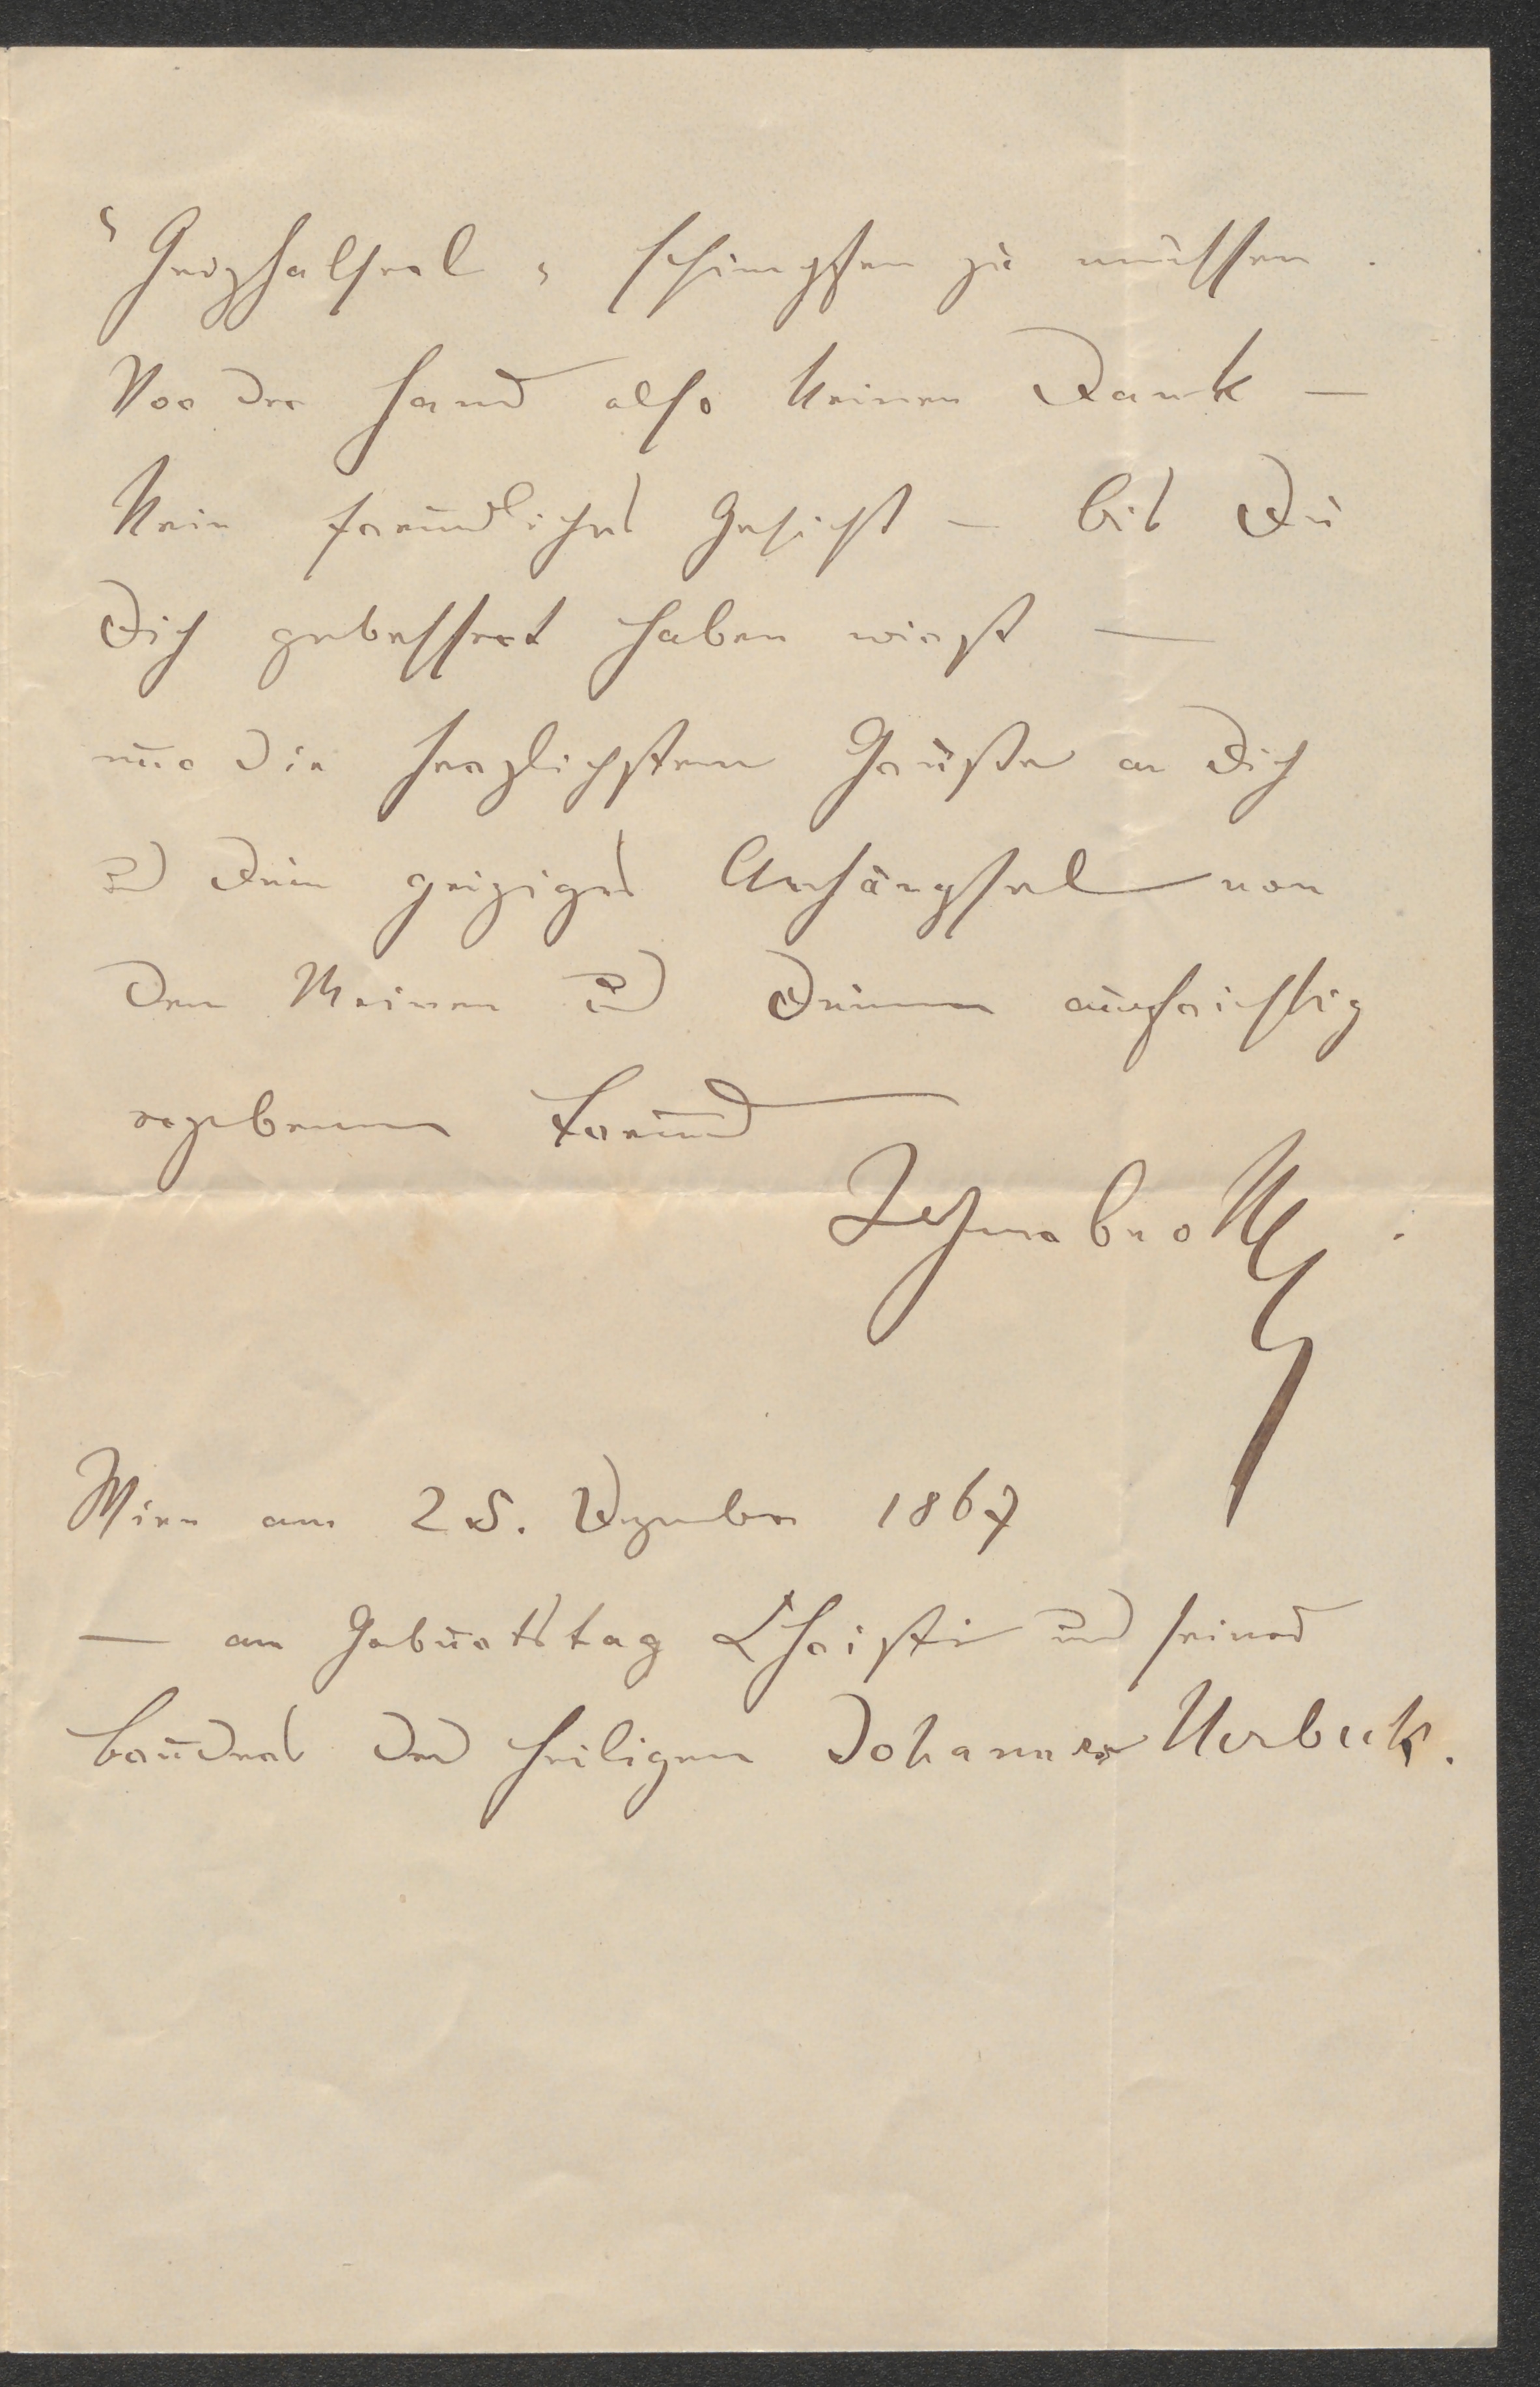 "Geizhalserl" schimpfen zu müssen.
Vor der Hand also keinen Dank —
kein freundliches Gesicht — bis Du
Dich gebessert haben wirst —
nur die herzlichsten Grüße an Dich
und Dein geiziges Anhängsel von
den Meinen und Deinem aufrichtig
ergebenen Freund
Wien am 25. Dezember 1867
— am Geburtstag Christi und seines
Bruders des heiligen Johannes Herbeck.